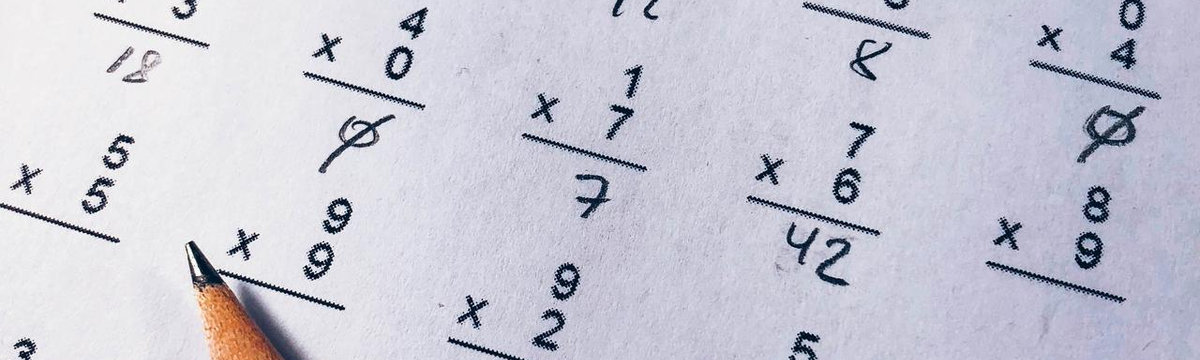 3
18
4
× 0
0
1
× 7
7
8
0
× 4
0
5
× 5
9
× 9
7
× 6
42
8
× 9
9
× 2
5